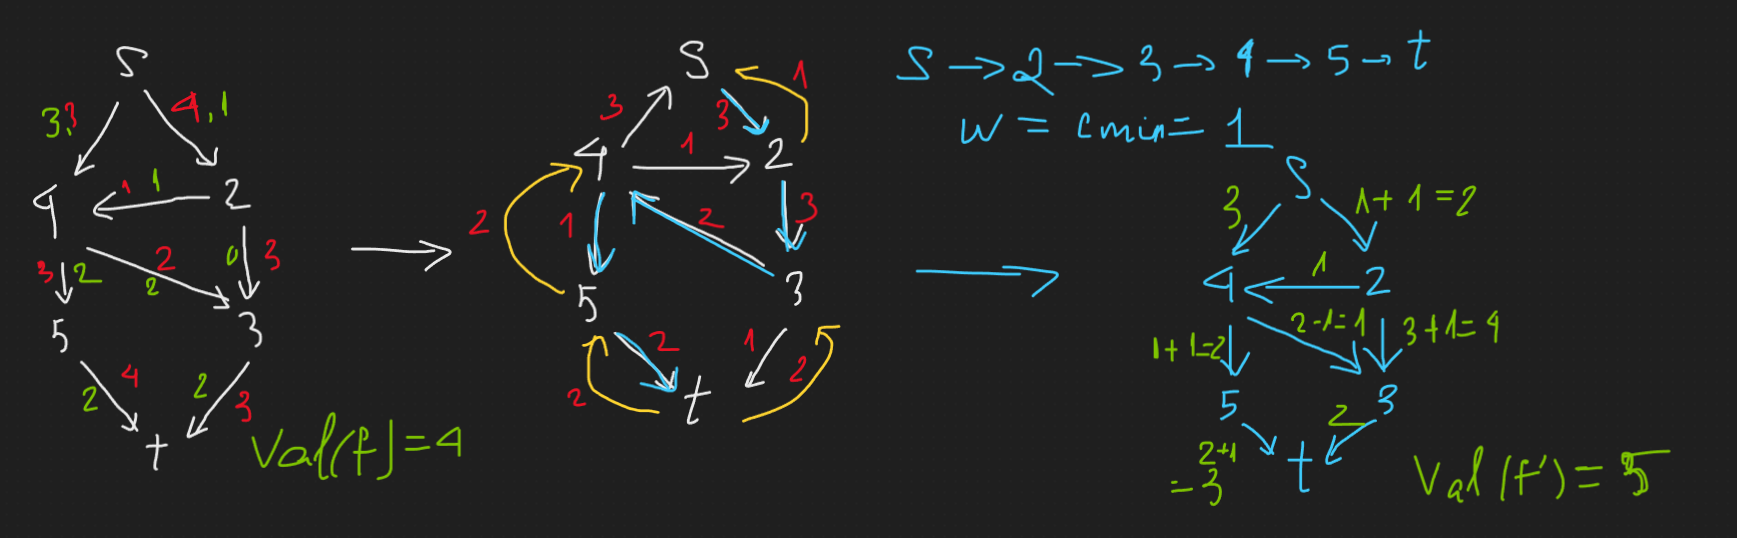 S
3,3 4,1
4 1 1 2
3 2 2 2 0 3
5 3
2 4 2 3
t
Val(f)=4
S
3 3 1
4 1 2
2 1 2 3
5 3
2 2 1 2
t
S → 2 → 3 → 4 → 5 → t
W = cmin = 1
S
3 1+1=2
4 1 2
1+1=2 2-1=1 3+1=4
5 3
2+1 2
=3 t
Val(f')=5